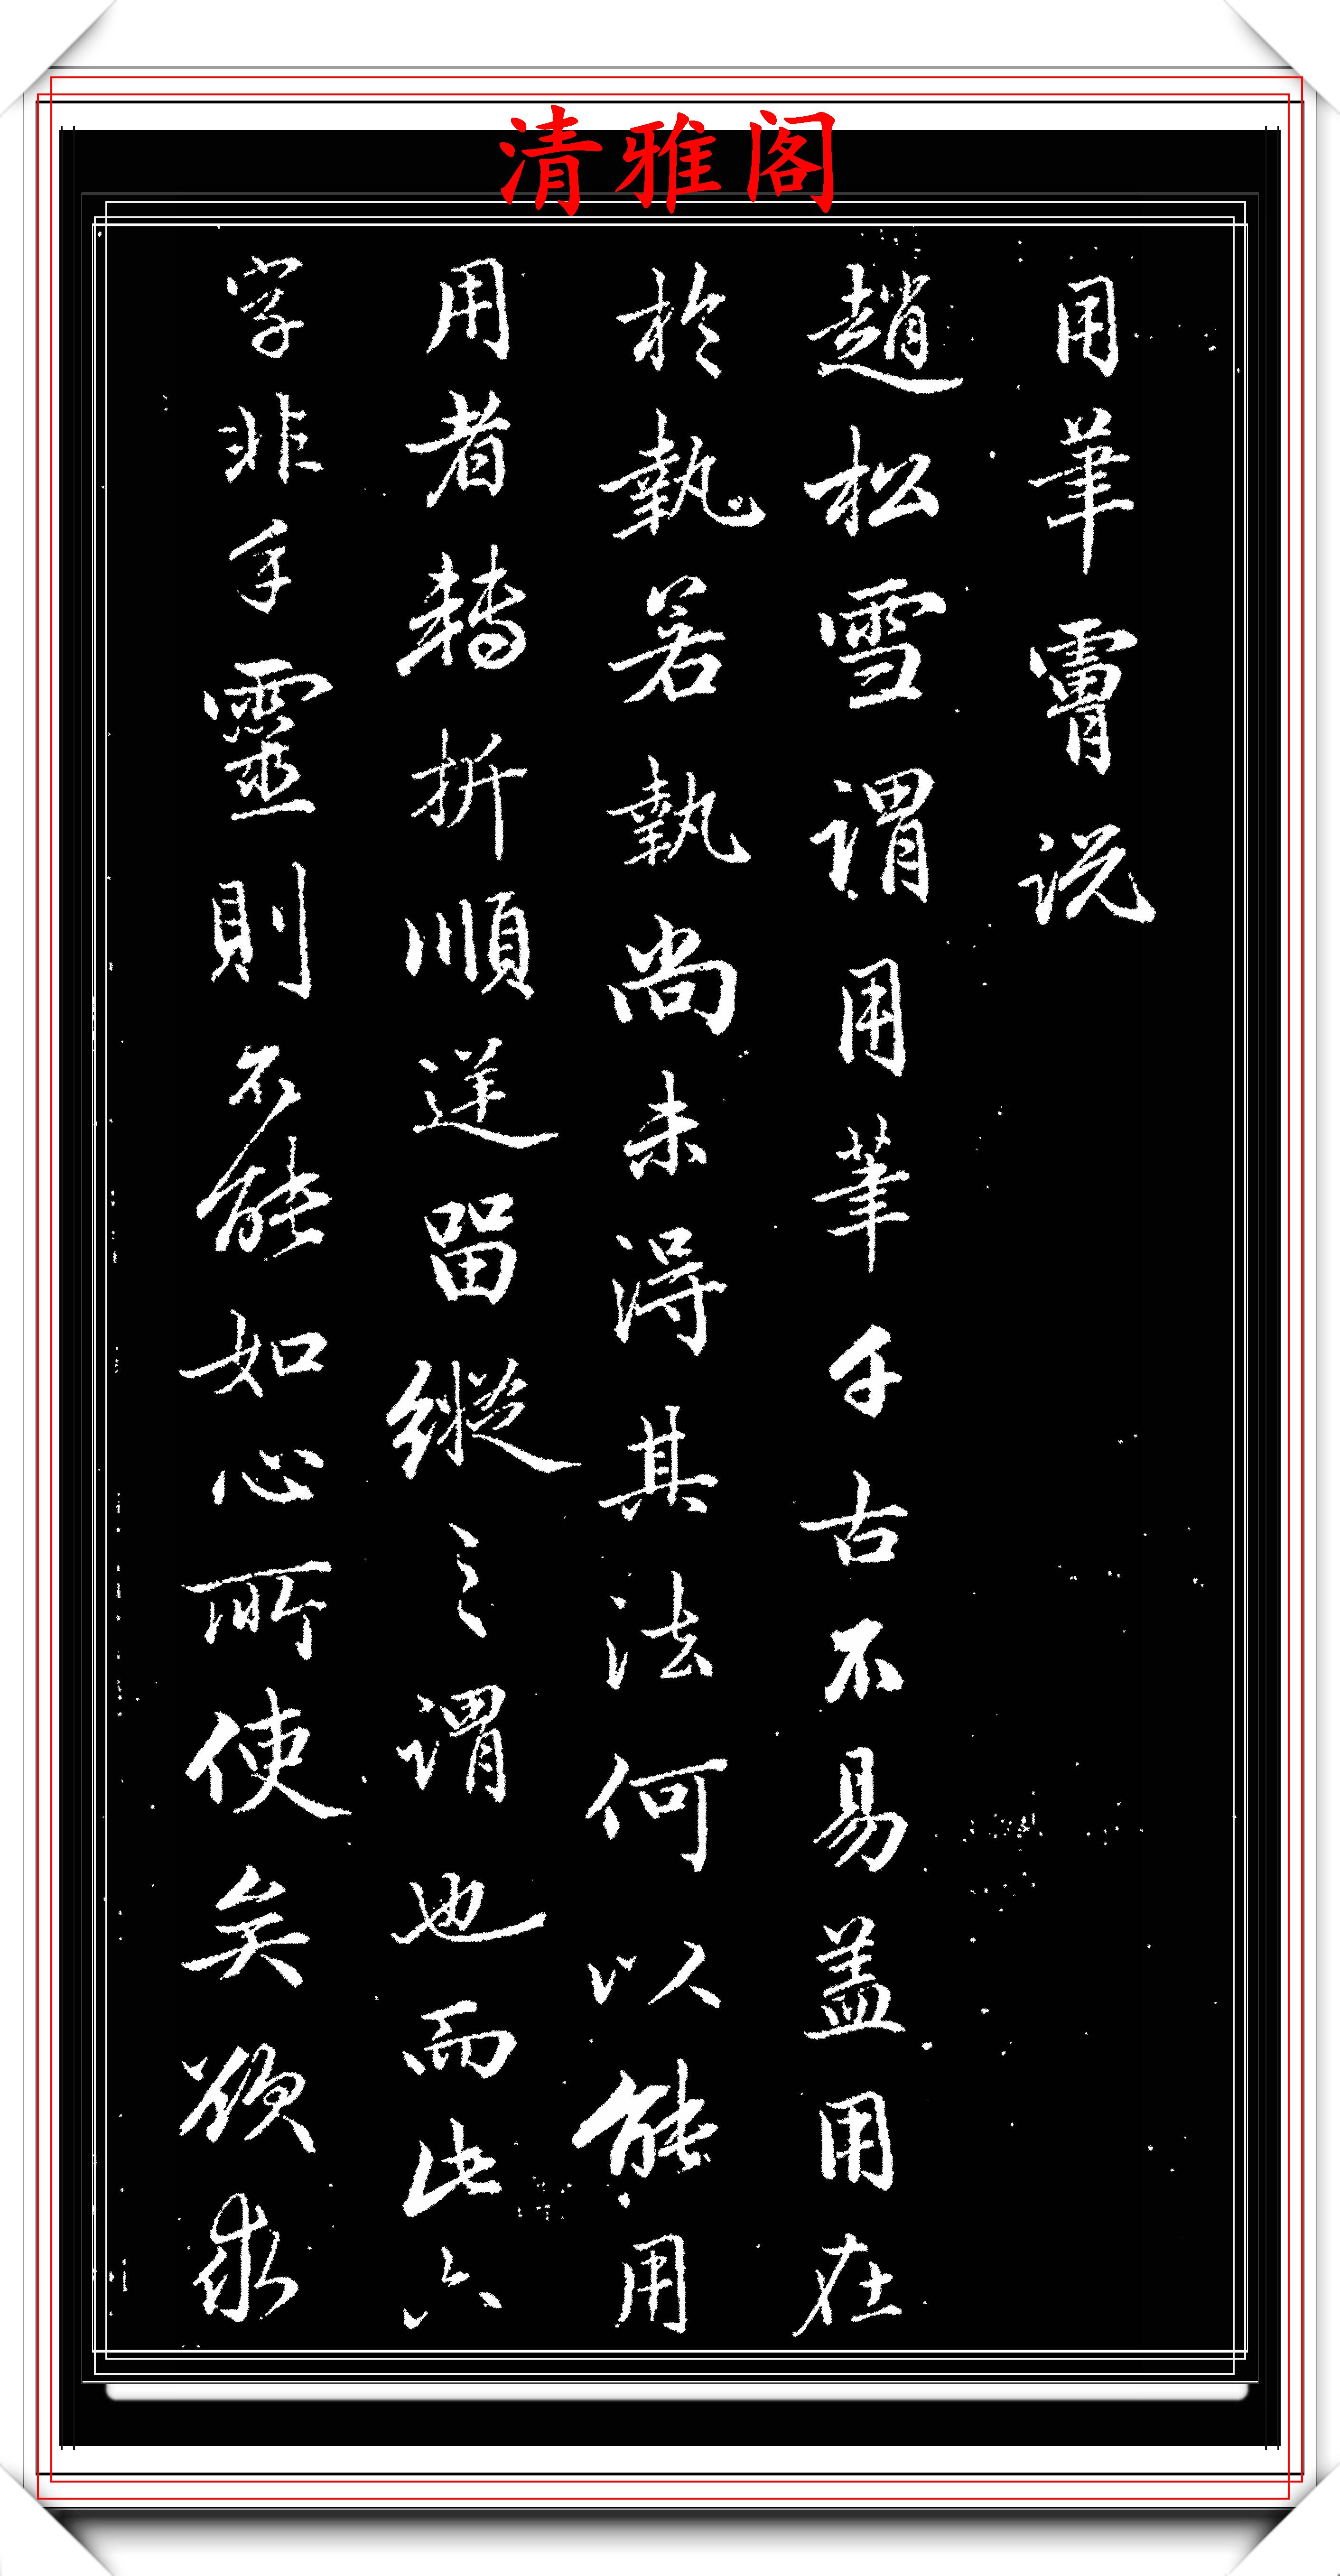 清雅阁
用筆膚说
趙松雪谓用筆千古不易盖用在
於執若執尚未得其法何以能用
用者轉折順逆留縱之谓也而此六
字非手靈則不能如心所使矣欲求